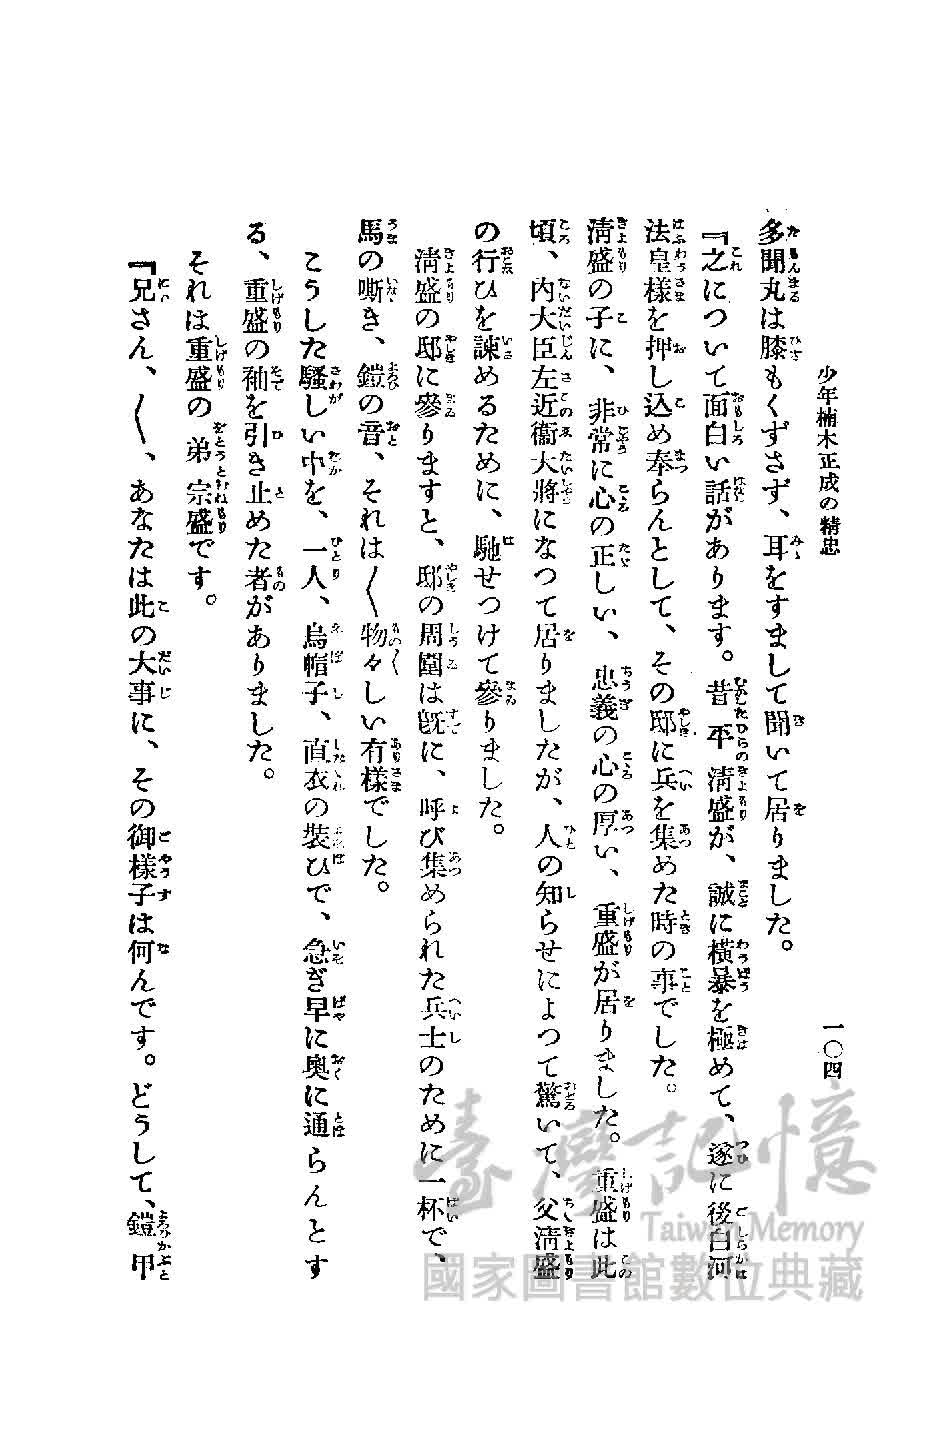 少年楠木正成の精忠
一〇四
多聞丸は膝もくずさず、耳をすまして聞いて居りました。
『之について面白い話があります。昔平清盛が、誠に橫暴を極めて、遂に後白河
法皇樣を押し込め奉らんとして、その邸に兵を集めた時の事でした。
淸盛の子に、非常に心の正しい、忠義の心の厚い、重盛が居りました。重盛は此
頃、內大臣左近衞大將になつて居りましたが、人の知らせによつて驚いて、父淸盛
の行ひを諫めるために、馳せつけて參りました。
淸盛の邸に參りますと、邸の周圍は旣に、呼び集められた兵士のために一杯で、
馬の嘶き、鎧の音、それは〱物々しい有樣でした。
こうした騷しい中を、一人、烏帽子、直衣の裝ひで、急ぎ早に奧に通らんとす
る、重盛の袖を引き止めた者がありました。
それは重盛の弟宗盛です。
『兄さん、〱、あなたは此の大事に、その御樣子は何んです。どうして、鎧甲
臺灣記憶
Taiwan Memory
國家圖書館數位典藏